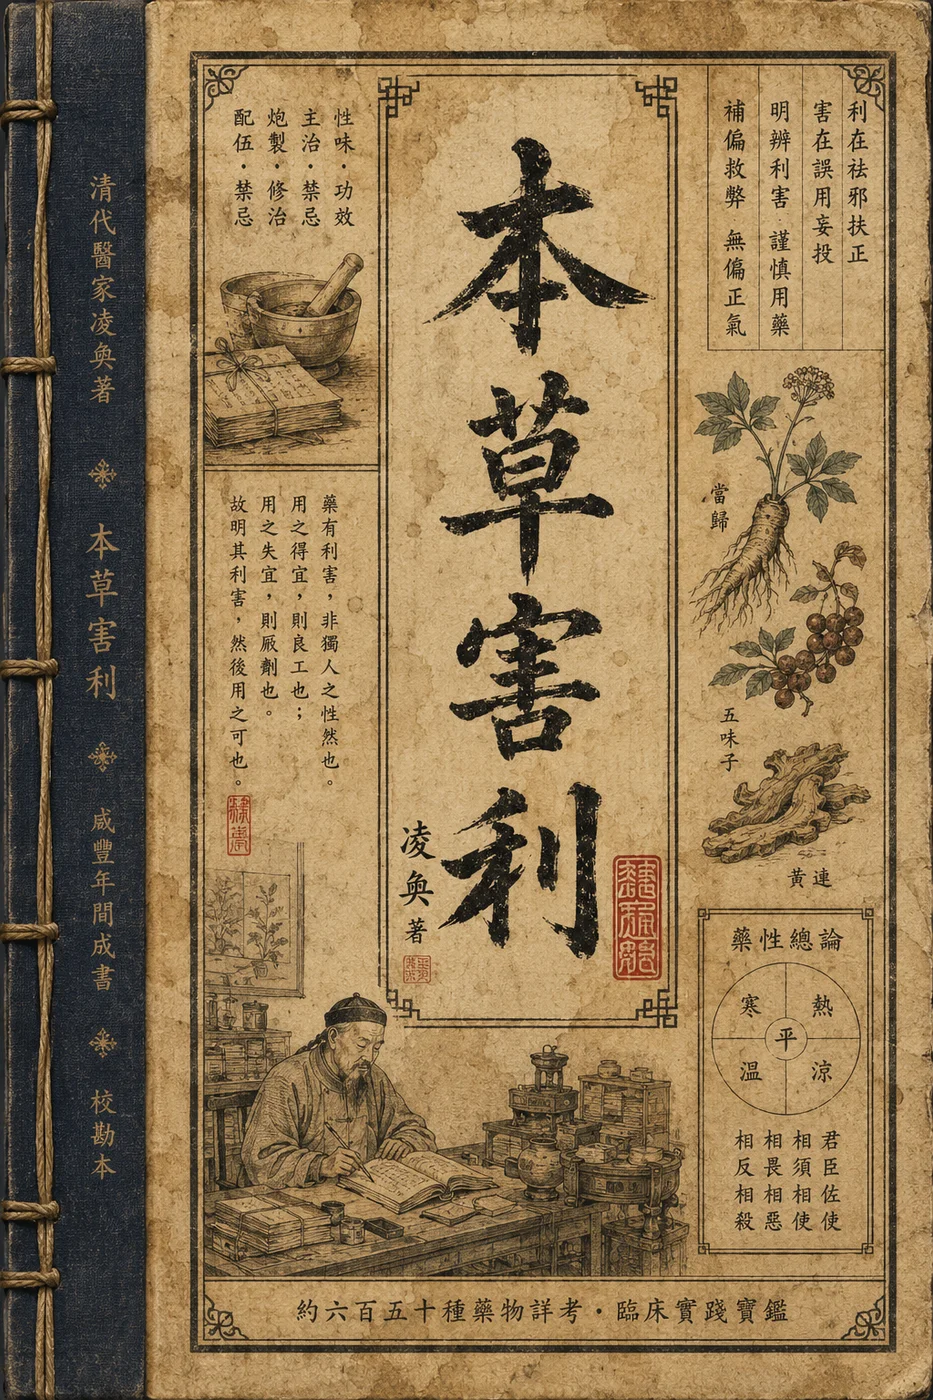 清代醫家凌奐著
本草害利
咸豐年間成書
校勘本
利在祛邪扶正
害在誤用妄投
明辨利害 謹慎用藥
補偏救弊 無偏正氣
本草害利
凌奐著
性味·功效
主治·禁忌
炮製·修治
配伍·禁忌
藥有利害,非獨人之性然也。
用之得宜,則良工也;
用之失宜,則厥劑也。
故明其利害,然後用之可也。
當歸
五味子
黃連
藥性總論
寒 熱
平
溫 涼
君臣佐使
相須相使
相畏相惡
相反相殺
約六百五十種藥物詳考·臨床實踐寶鑑